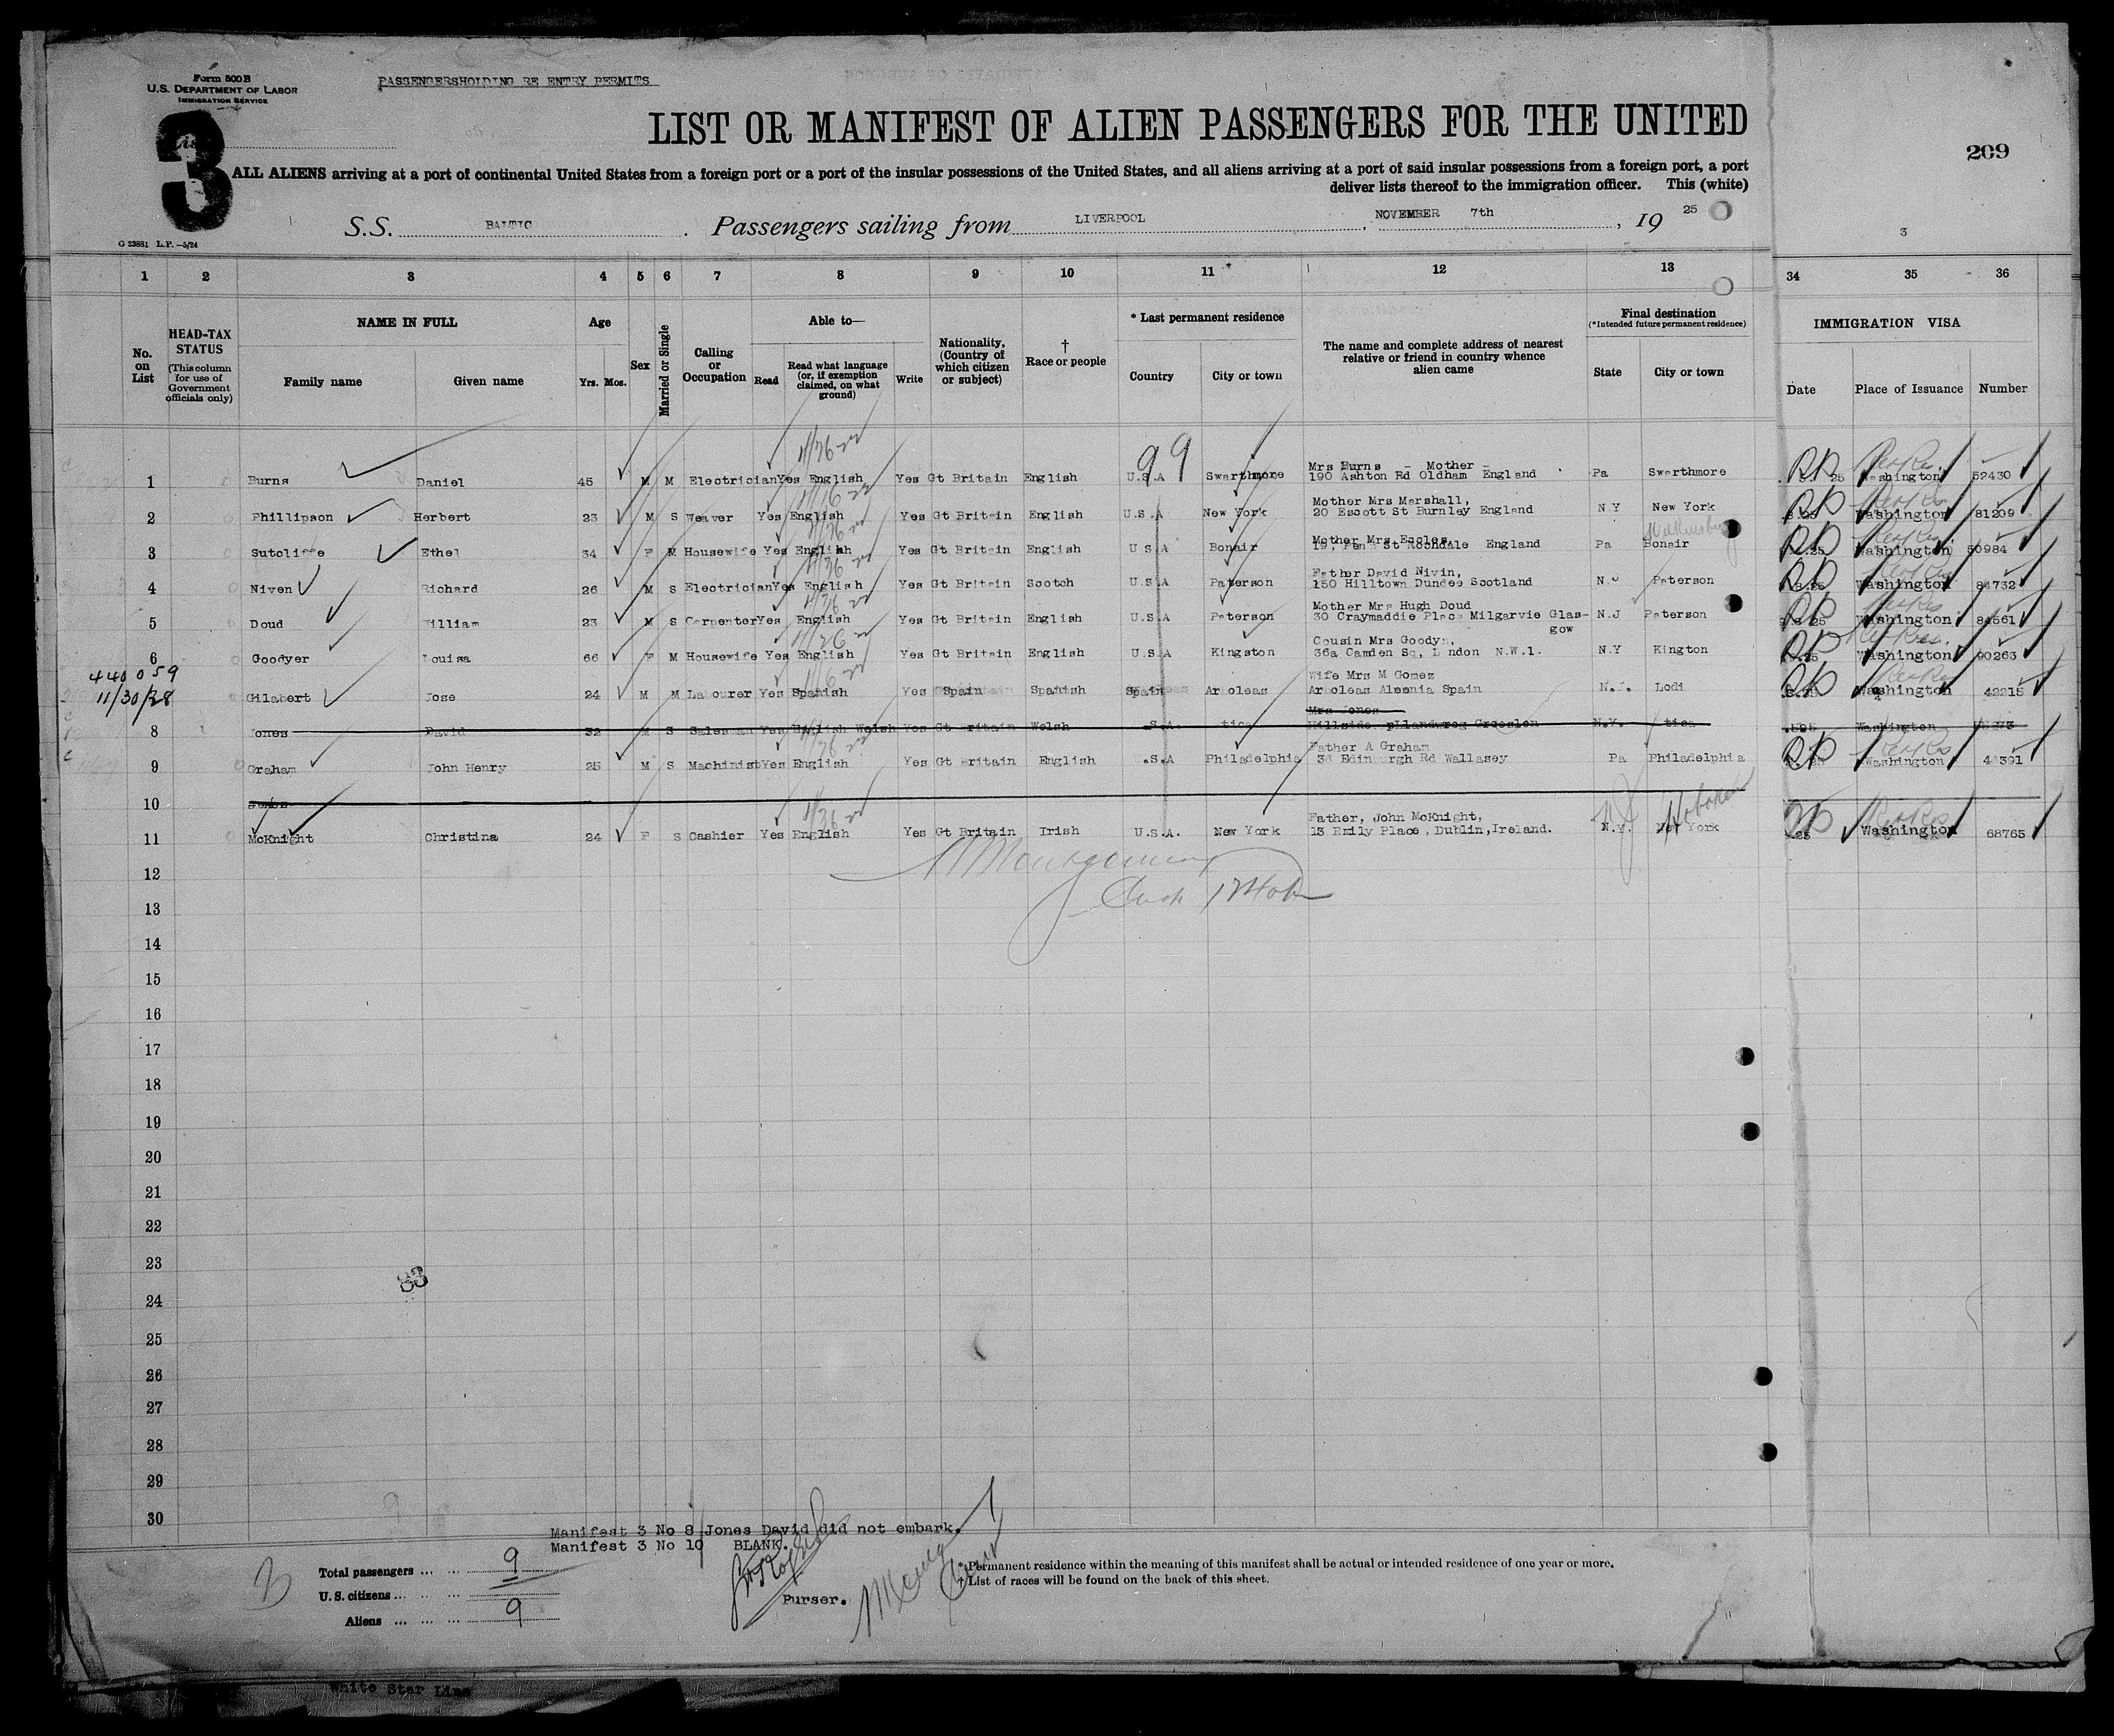 Form 500 B
U.S. DEPARTMENT OF LABOR
IMMIGRATION SERVICE
PASSENGERSHOLDING RE ENTRY PERMITS
3
LIST OR MANIFEST OF ALIEN PASSENGERS FOR THE UNITED
209
ALL ALIENS arriving at a port of continental United States from a foreign port or a port of the insular possessions of the United States, and all aliens arriving at a port of said insular possessions from a foreign port, a port
deliver lists thereof to the immigration officer. This (white)
S.S. BALTIC. Passengers sailing from LIVERPOOL, NOVEMBER 7th, 19 25
3
G 23881 L.P.—5/24
1 2 3 4 5 6 7 8 9 10 11 12 13 34 35 36
No. on List
HEAD-TAX STATUS (This column for use of Government officials only)
NAME IN FULL
Family name Given name
Age
Yrs. Mos.
Sex
Married or Single
Calling or Occupation
Able to—
Read Read what language (or, if exemption claimed, on what ground) Write
Nationality, (Country of which citizen or subject)
† Race or people
* Last permanent residence
Country City or town
The name and complete address of nearest relative or friend in country whence alien came
Final destination
(*Intended future permanent residence)
State City or town
IMMIGRATION VISA
Date Place of Issuance Number
99
Mrs Burns - Mother -
1 Burns Daniel 45 M M Electrician Yes English Yes Gt Britain English U.S.A Swarthmore 190 Ashton Rd Oldham England Pa Swarthmore 25 Washington 52430
Mother Mrs Marshall,
2 Phillipson Herbert 23 M S Weaver Yes English Yes Gt Britain English U.S.A New York 20 Escott St Burnley England N.Y New York Washington 81209
Mother Mrs Eccles,
3 Sutcliffe Ethel 34 F M Housewife Yes English Yes Gt Britain English U S A Bonair 19, St Rochdale England Pa Bonair Washington 50984
Father David Nivin,
4 Niven Richard 26 M S Electrician Yes English Yes Gt Britain Scotch U.S.A Paterson 150 Hilltown Dundee Scotland N.J Paterson Washington 84732
Mother Mrs Hugh Doud
5 Doud William 23 M S Carpenter Yes English Yes Gt Britain English U.S.A Paterson 30 Craymaddie Place Milgarvie Glas-
gow N.J Paterson 25 Washington 84561
Cousin Mrs Goodyn,
6 Goodyer Louisa 66 F M Housewife Yes English Yes Gt Britain English U.S.A Kingston 36a Camden Sq, London N.W.1. N.Y Kington Washington 90263
440059
11/30/28
Wife Mrs M Gomez
Gilabert Jose 24 M M Labourer Yes Spanish Yes Spain Spanish Spain Arboleas Arboleas Alemnia Spain N.J. Lodi Washington 42215
Mrs Jones
8 Jones David 32 M S Salesman Yes English Welsh Yes Gt Britain Welsh .S.A. tica Hillside N.Y. tica Washington
Father A Graham
9 Graham John Henry 25 M S Machinist Yes English Yes Gt Britain English .S.A Philadelphia Edinburgh Rd Wallasey Pa Philadelphia Washington
10
Hoboken
Father, John McKnight,
11 McKnight Christina 24 F S Cashier Yes English Yes Gt Britain Irish U.S.A. New York 13 Emily Place, Dublin, Ireland. N.Y. New York 25 Washington 68765
12
13
14
15
16
17
18
19
20
21
22
23
83
24
25
26
27
28
29
30
Manifest 3 No 8 Jones David did not embark.
Manifest 3 No 10 BLANK.
Purser.
3
Total passengers ... ... 9
U.S. citizens ...
Aliens ... ... ... 9
* Permanent residence within the meaning of this manifest shall be actual or intended residence of one year or more.
† List of races will be found on the back of this sheet.
White Star Line